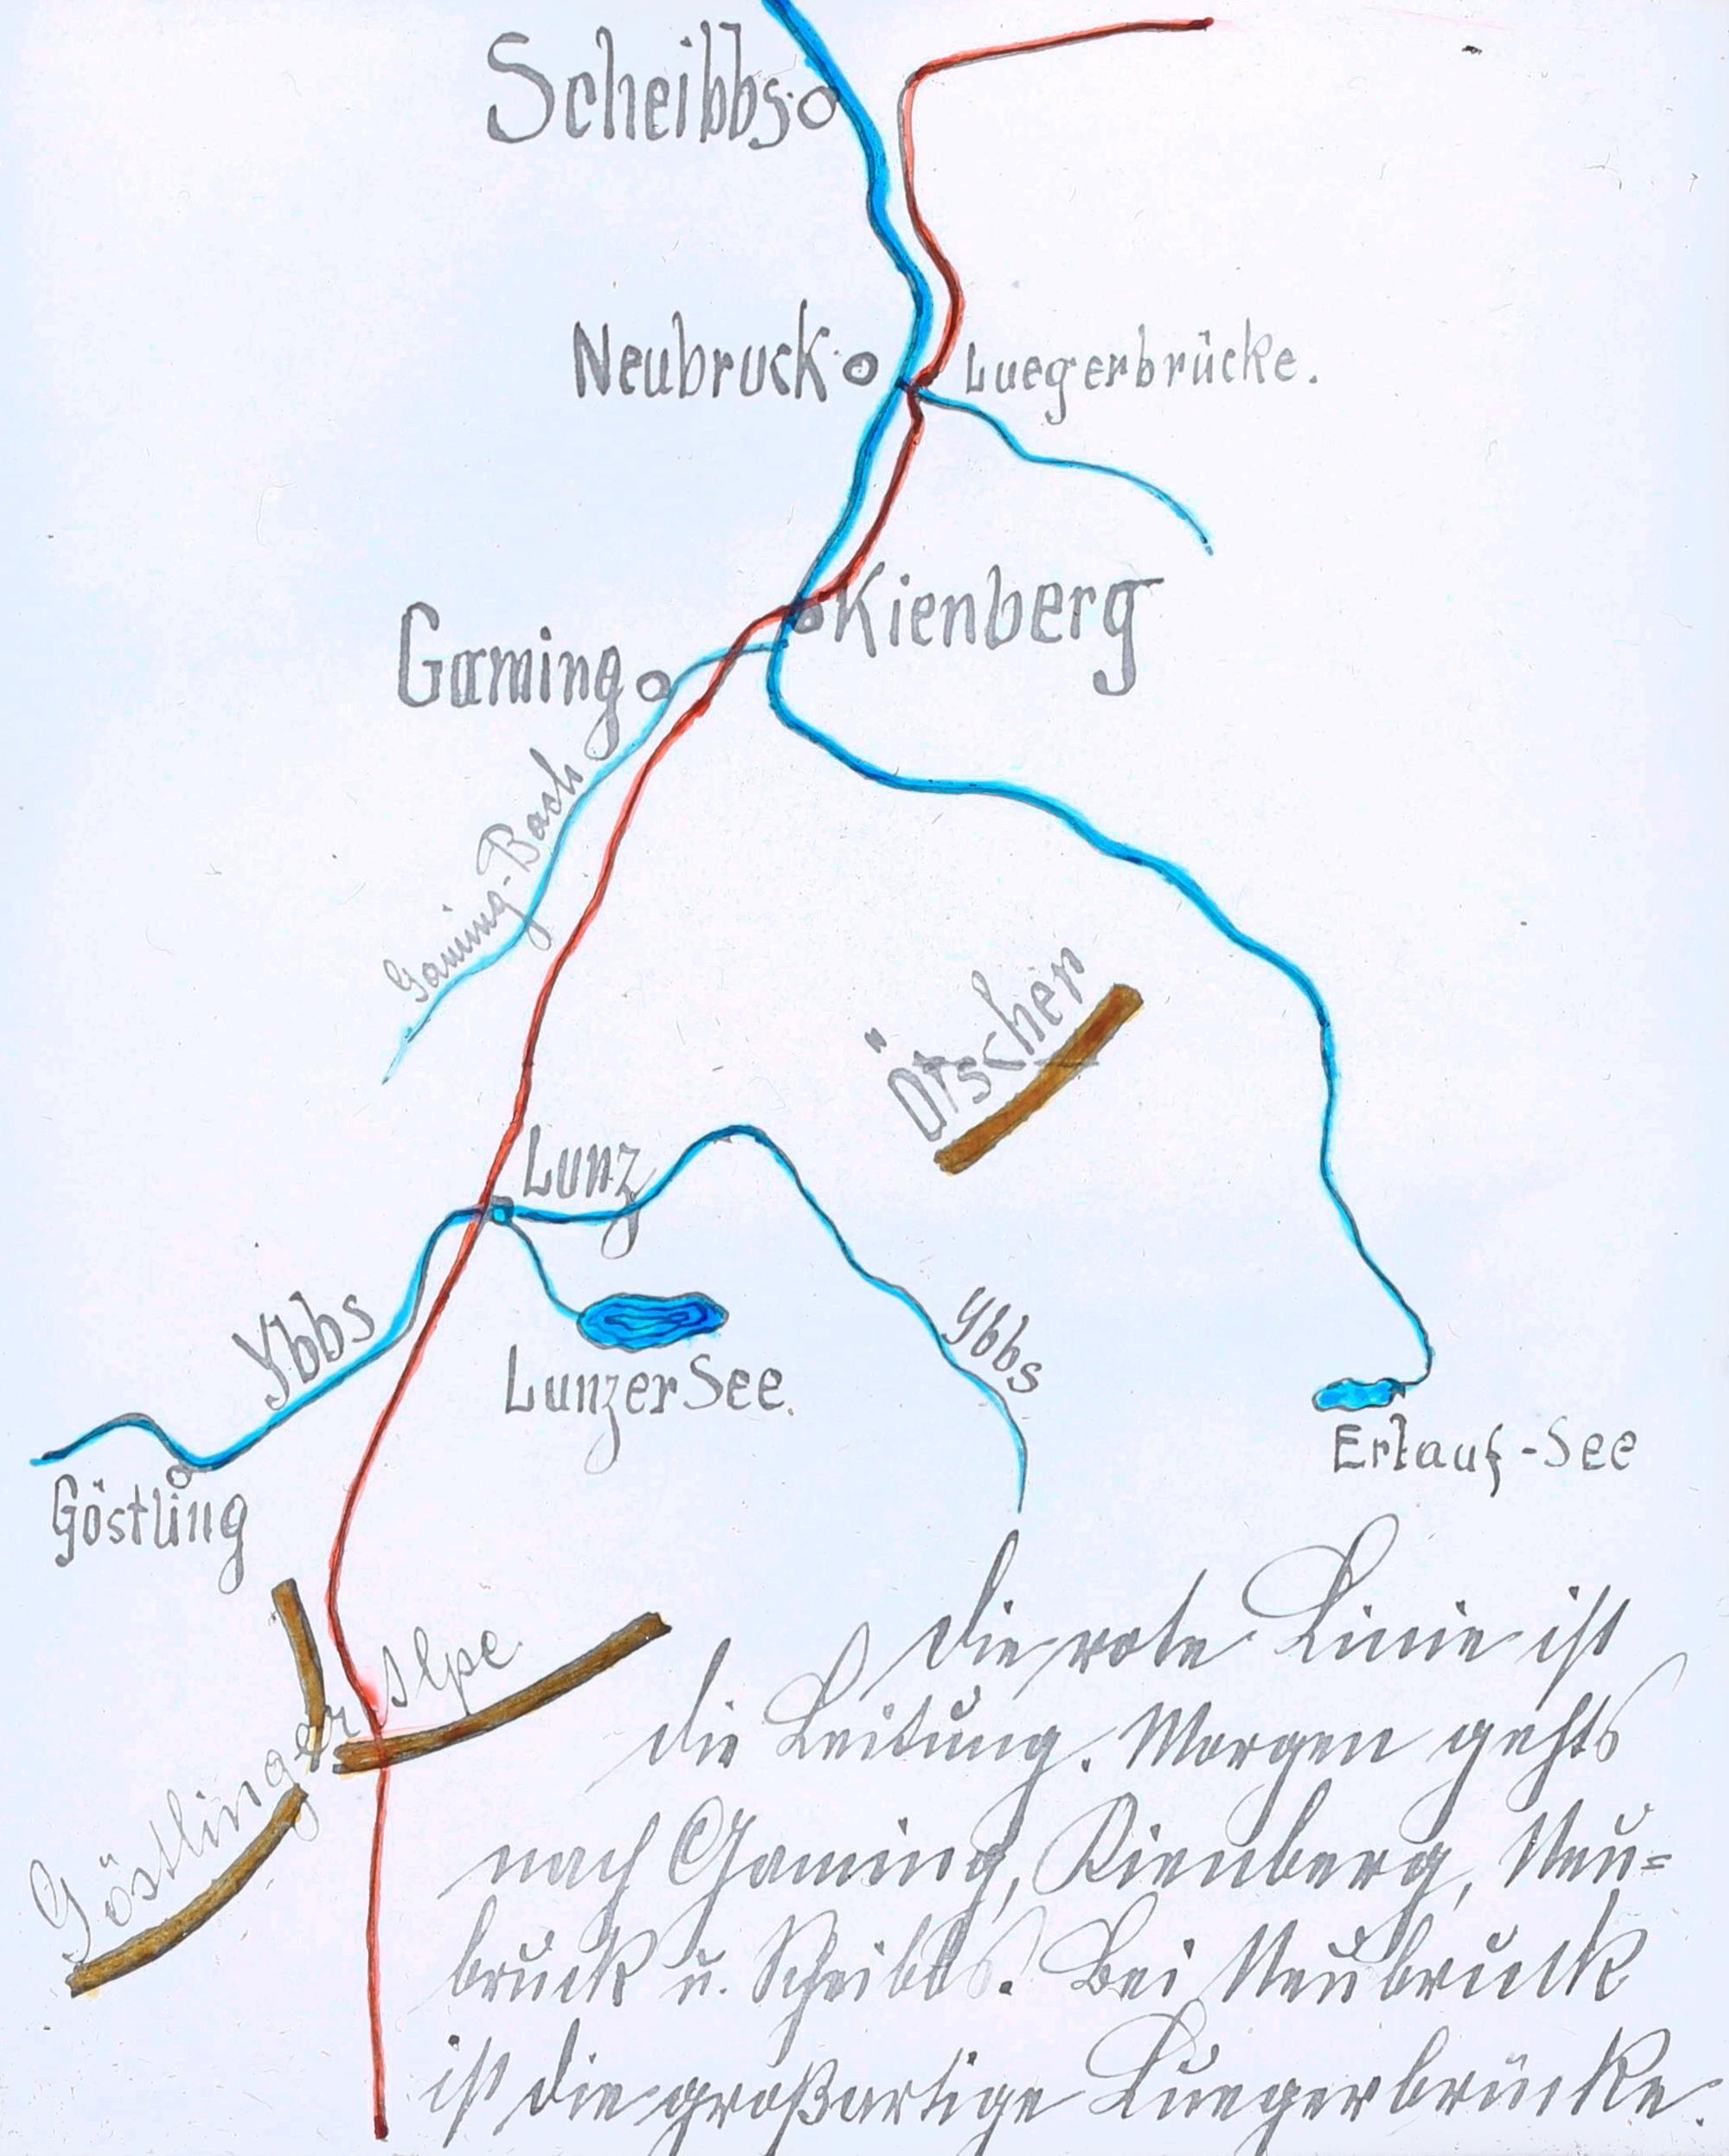 Scheibbs
Neubruck
Luegerbrücke.
Kienberg
Gaming
Gaming-Bach
Ötscher
Lunz
Ybbs
Ybbs
Lunzer See.
Erlauf-See
Göstling
Göstlinger Alpe
Die rote Linie ist
die Leitung. Morgen gehts
nach Gaming, Kienberg, Neu=
bruck u. Scheibbs. Bei Neubruck
ist die großartige Luegerbrücke.